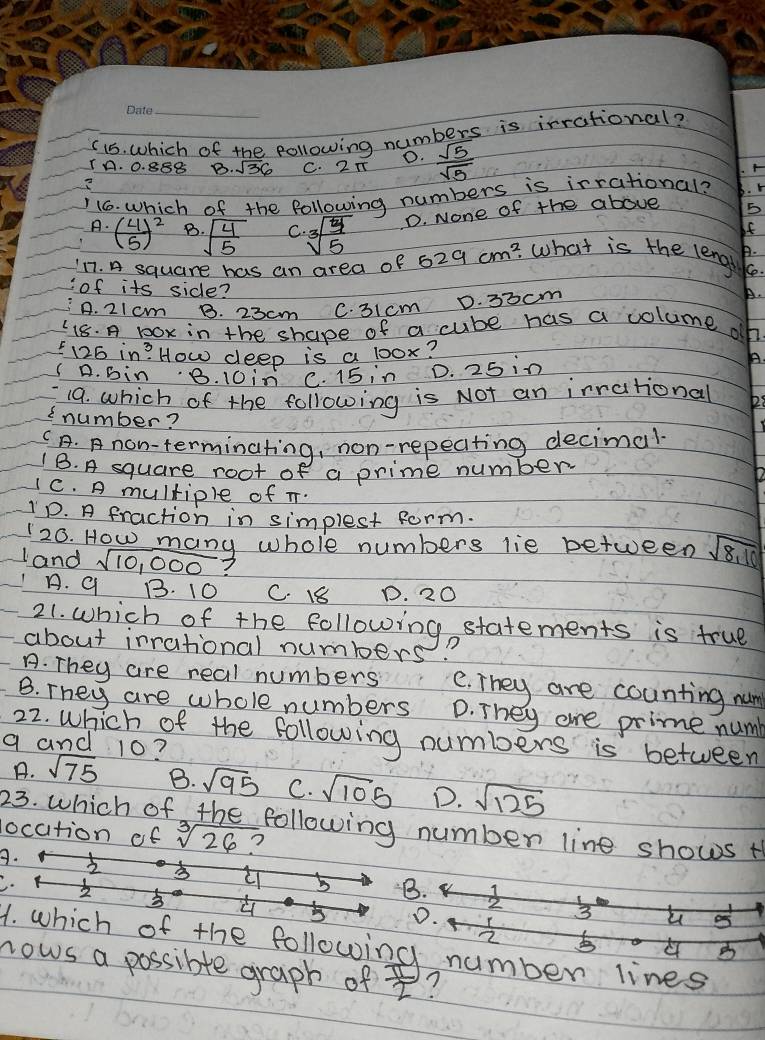 Date
15. Which of the following numbers is irrational?
A. 0.888 B. √36 C. 2π D. √5/√5
16. Which of the following numbers is irrational?
A. (4/5)² B. √(4/5) C. ³√(4/5) D. None of the above
17. A square has an area of 529 cm². What is the length
of its side?
A. 21cm B. 23cm C. 31cm D. 33cm
18. A box in the shape of a cube has a volume of
125 in³. How deep is a box?
A. 5in B. 10in C. 15in D. 25in
19. Which of the following is NOT an irrational
number?
A. A non-terminating, non-repeating decimal.
B. A square root of a prime number.
C. A multiple of π.
D. A fraction in simplest form.
20. How many whole numbers lie between √8,10
and √10,000?
A. 9 B. 10 C. 18 D. 20
21. Which of the following statements is true
about irrational numbers?
A. They are real numbers C. They are counting num
B. They are whole numbers D. They are prime numb
22. Which of the following numbers is between
9 and 10?
A. √75 B. √95 C. √105 D. √125
23. Which of the following number line shows t
location of ³√26?
A. 2 3 4 5
B. 2 3 4 5
C. 2 3 4 5
D. 2 3 4 5
4. Which of the following number lines
hows a possible graph of π/2?